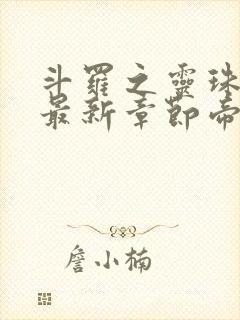 斗羅之靈珠
最新章節帝
詹小楠